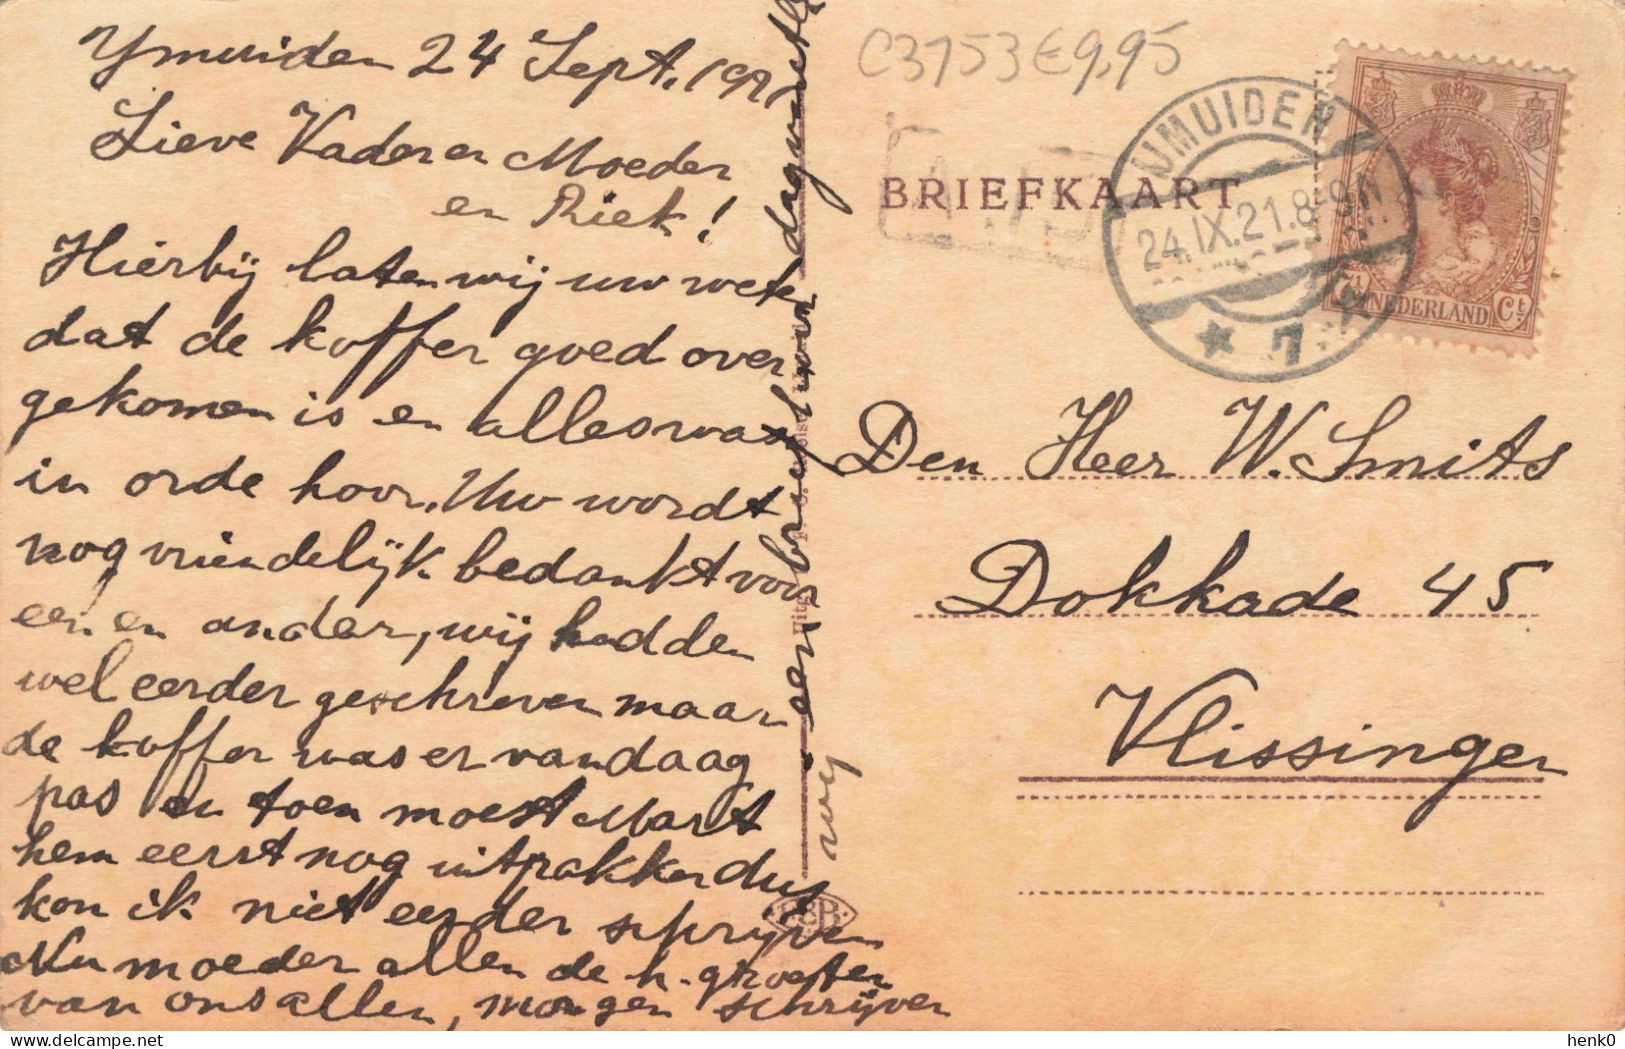 Ymuiden 24 Sept. 1921
Lieve Vader en Moeder
en Riek!
Hierbij laten wij uw weten
dat de koffer goed over
gekomen is en alles was
in orde hoor. Uw wordt
nog vriendelijk bedankt voor
een en ander, wij hadden
wel eerder geschreven maar
de koffer was er vandaag
pas en toen moest Mart
hem eerst nog uitpakken dus
kon ik niet eerder schrijven
Nu moeder allen de h. groeten
van ons allen, morgen schrijven
wij een brief hoor dag
C3753 €9,95
BRIEFKAART
IJMUIDEN
24.IX.21.8-9N
* 7 *
7½ NEDERLAND Ct.
Den Heer W. Smits
Dokkade 45
Vlissingen
henk0